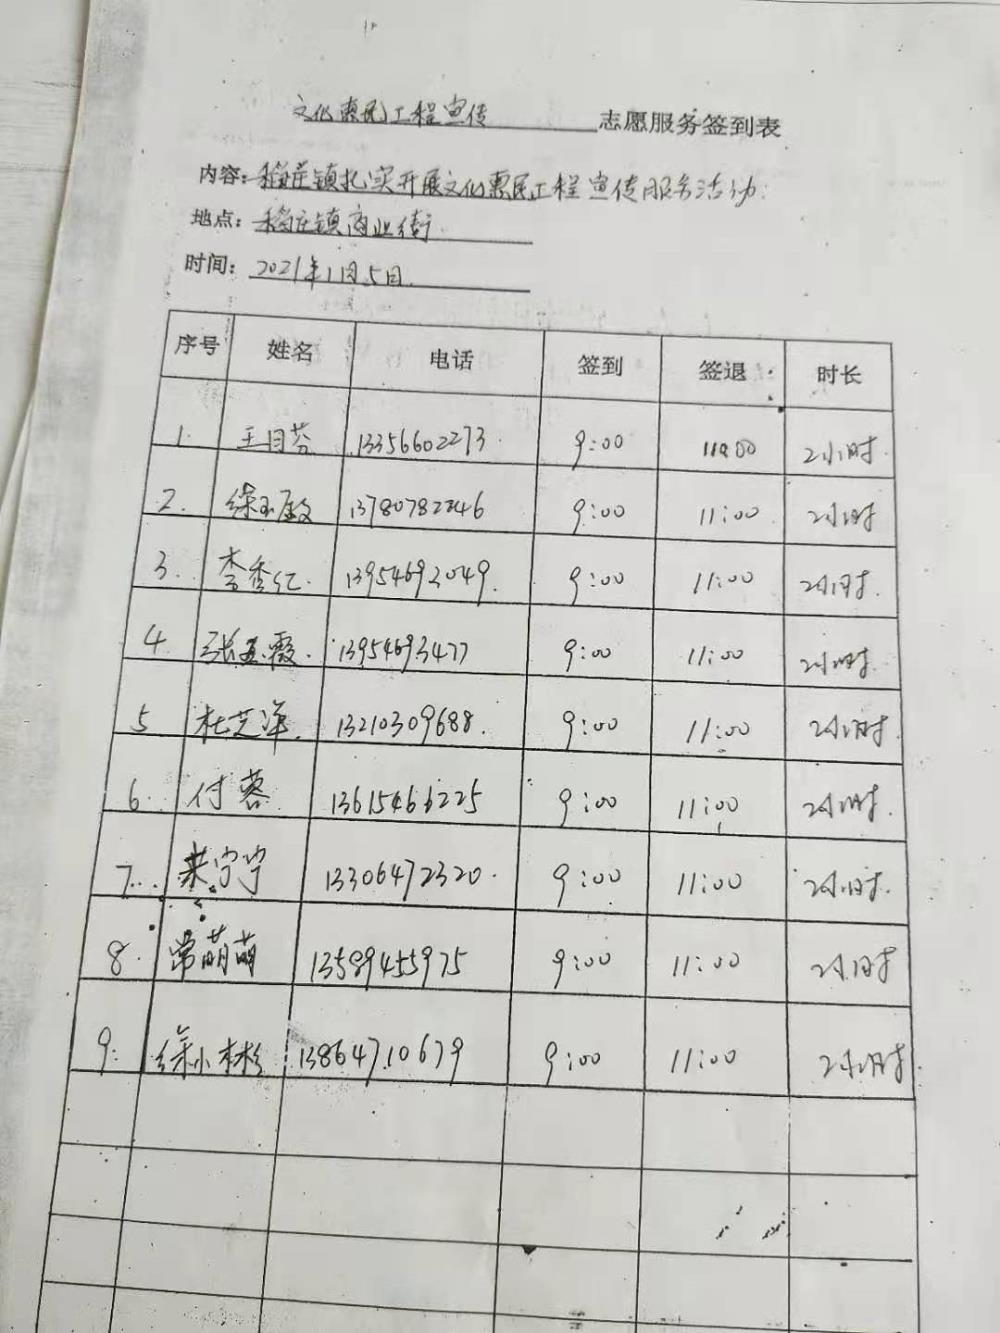 文化惠民工程宣传 志愿服务签到表
内容：稻庄镇扎实开展文化惠民工程宣传服务活动.
地点：稻庄镇商业街.
时间：2021年1月5日.
序号 姓名 电话 签到 签退 时长
1. 王日芬 13356602273. 9:00 11:00 2小时.
2. 徐玉 13780782246 9:00 11:00 2小时
3. 李香仁. 13954692049. 9:00 11:00 2小时.
4. 张玉霞. 13954693477 9:00 11:00 2小时.
5 杜芝洋. 13210309688. 9:00 11:00 2小时.
6. 付蓉 13615466225 9:00 11:00 2小时.
7. 宁宁 13306472320. 9:00 11:00 2小时.
8. 常萌萌 13589455975 9:00 11:00 2小时
9. 徐小彬 13864710679 9:00 11:00 2小时.